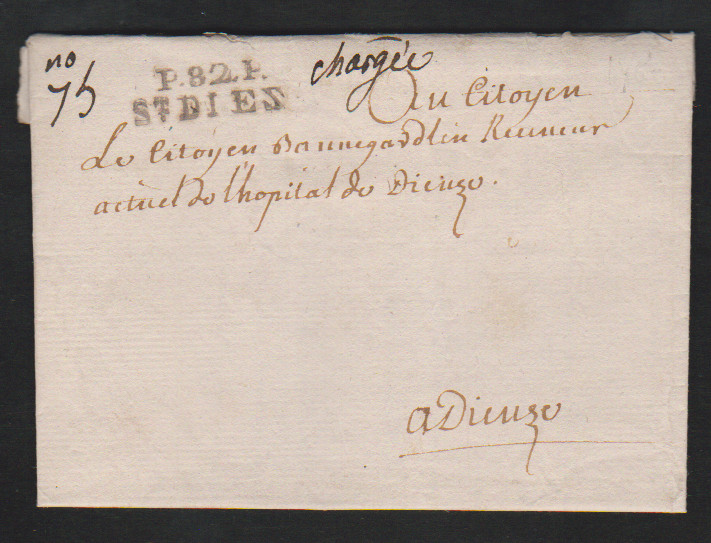 no
75
P.82.P.
ST DIEZ
chargée
Au Citoyen
Le Citoyen Receveur
actuel de l'hopital de Dieuze.
a Dieuze